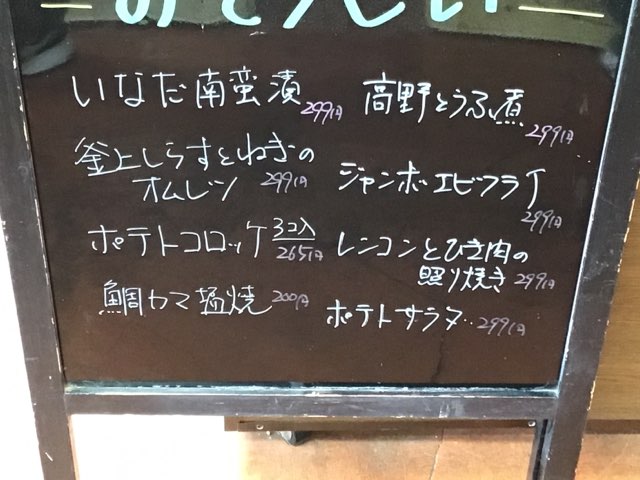 いなだ南蛮漬 299円
釜上しらすとねぎの
オムレツ 299円
ポテトコロッケ 3コ入 265円
鯛カマ塩焼 200円
高野とうふ煮 299円
ジャンボエビフライ 299円
レンコンとひき肉の
照り焼き 299円
ポテトサラダ 299円